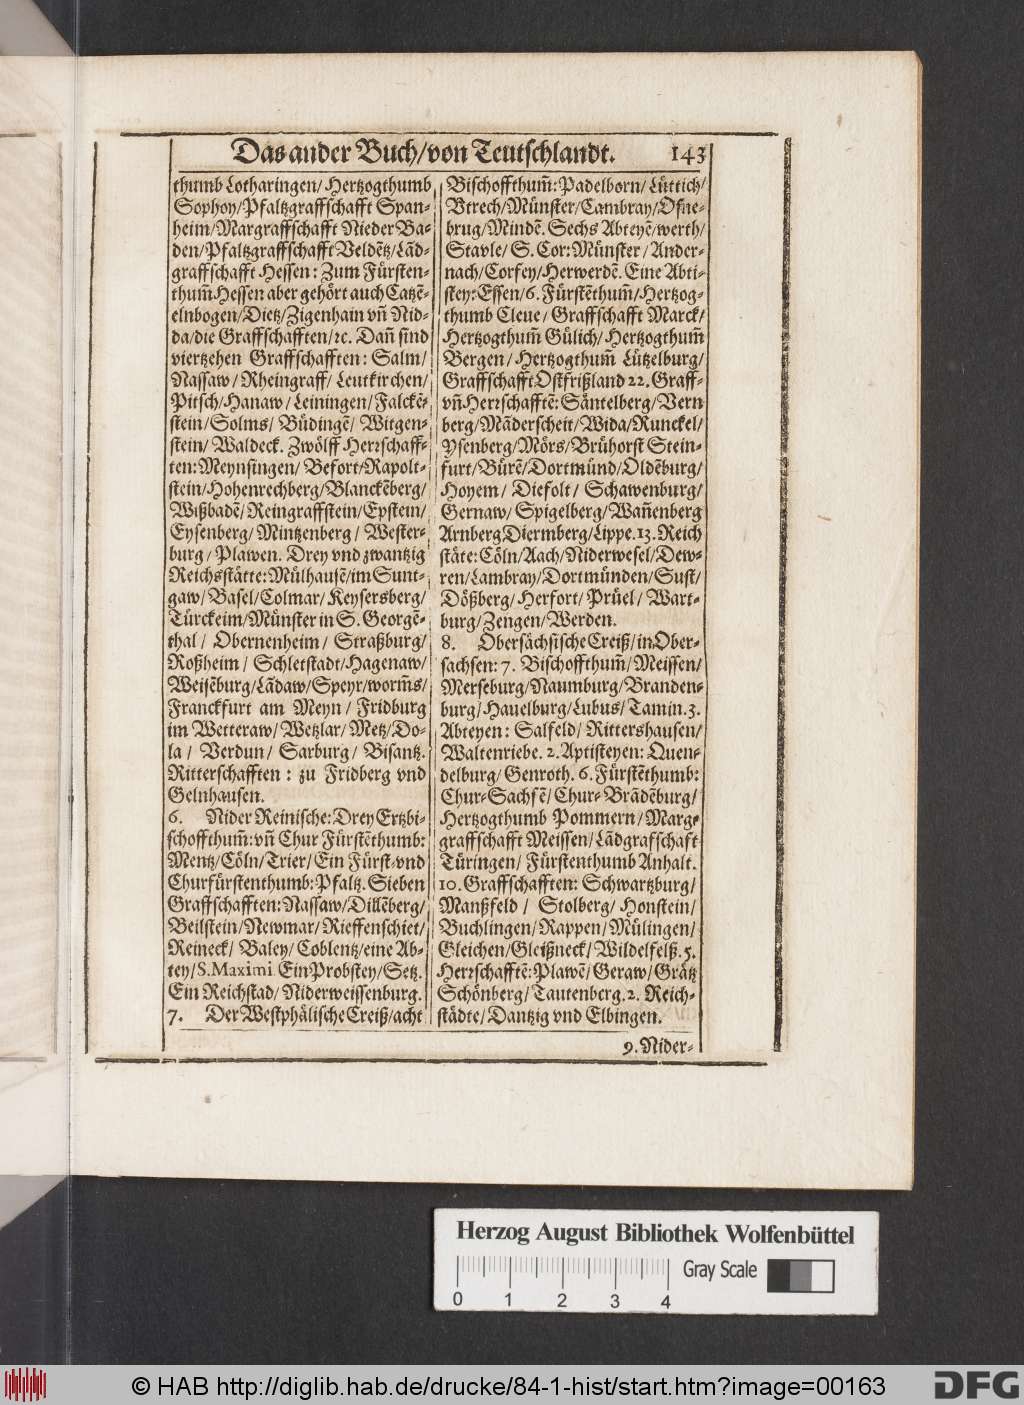 Das ander Buch/von Teutschlandt. 143
thumb Lotharingen/ Hertzogthumb
Sophoy/Pfaltzgraffschafft Span-
heim/Margraffschafft Nieder Ba-
den/Pfaltzgraffschafft Veldẽtz/Lãd-
graffschafft Hessen: Zum Fürsten-
thum̃ Hessen aber gehört auch Catzẽ-
elnbogen/Dietz/Zigenhain vñ Nid-
da/die Graffschafften/ꝛc. Dañ sind
viertzehen Graffschafften: Salm/
Nassaw/ Rheingraff/ Leutkirchen/
Pitsch/Hanaw/Leiningen/Falckẽ-
stein/Solms/ Büdingẽ/ Witgen-
stein/ Waldeck. Zwölff Herrschaff-
ten: Meynsingen/ Befort/Rapolt-
stein/Hohenrechberg/Blanckẽberg/
Wißbadẽ/Reingraffstein/Epstein/
Eysenberg/ Mintzenberg/ Wester-
burg/ Plawen. Drey vnd zwantzig
Reichsstätte: Mülhausẽ/im Sunt-
gaw/ Basel/Colmar/ Keysersberg/
Türckeim/Münster in S. Georgẽ-
thal/ Obernenheim/ Straßburg/
Roßheim/ Schletstadt/Hagenaw/
Weisẽburg/Lãdaw/Speyr/worm̃s/
Franckfurt am Meyn/ Fridburg
im Wetteraw/ Wetzlar/ Metz/Do-
la/ Verdun/ Sarburg/ Bisantz.
Ritterschafften: zu Fridberg vnd
Gelnhausen.
6. Nider Reinische: Drey Ertzbi-
schoffthum̃: vñ Chur Fürstẽthumb:
Mentz/Cöln/Trier/Ein Fürst-vnd
Churfürstenthumb: Pfaltz. Sieben
Graffschafften: Nassaw/Dillẽberg/
Beilstein/Newmar/ Rieffenschiet/
Reineck/ Baley/ Coblentz/eine Ab-
tey/S. Maximi. Ein Probstey/Setz.
Ein Reichstad/ Niderweissenburg.
7. Der Westphälische Creiß/acht
Bischoffthum̃: Padelborn/ Lüttich/
Vtrech/Münster/Cambray/Osne-
brug/Mindẽ. Sechs Abteyẽ/werth/
Stavle/ S. Cor: Münster/ Ander-
nach/Corfey/Herwerdẽ. Eine Abti-
stey: Essen/6. Fürstẽthum̃/Hertzog-
thumb Cleue/ Graffschafft Marck/
Hertzogthum̃ Gülich/ Hertzogthum̃
Bergen/ Hertzogthum̃ Lützelburg/
Graffschafft Ostfrißland 22. Graff-
vñ Herrschafftẽ: Säntelberg/Vern
berg/Mãderscheit/Wida/Runckel/
Ysenberg/Mörs/Brühorst Stein-
furt/Bürẽ/Dortmünd/Oldẽburg/
Hoyem/ Diefolt/ Schawenburg/
Gernaw/ Spigelberg/Wañenberg
Arnberg Diermberg/Lippe. 13. Reich
stäte: Cöln/Aach/Niderwesel/Dew-
ren/Lambray/Dortmünden/Sust/
Dößberg/ Herfort/ Prüel/ Wart-
burg/Zengen/Werden.
8. Obersächsische Creiß/in Ober-
sachsen: 7. Bischoffthum̃/Meissen/
Merseburg/Naumburg/Branden-
burg/Hauelburg/Lubus/Tamin. 3.
Abteyen: Salfeld/ Rittershausen/
Waltenriebe. 2. Aptisteyen: Quen-
delburg/ Genroth. 6. Fürstẽthumb:
Chur-Sachsẽ/Chur-Brãdẽburg/
Hertzogthumb Pommern/ Marg-
graffschafft Meissen/Lãdgrafschaft
Türingen/ Fürstenthumb Anhalt.
10. Graffschafften: Schwartzburg/
Manßfeld/ Stolberg/ Honstein/
Buchlingen/Rappen/Mülingen/
Gleichen/Gleißneck/Wildelfelß. 5.
Herrschafftẽ: Plawẽ/Geraw/Grätz
Schönberg/Tautenberg. 2. Reich-
städte/Dantzig vnd Elbingen.
9. Nider-
Herzog August Bibliothek Wolfenbüttel
Gray Scale
0 1 2 3 4
© HAB http://diglib.hab.de/drucke/84-1-hist/start.htm?image=00163
DFG